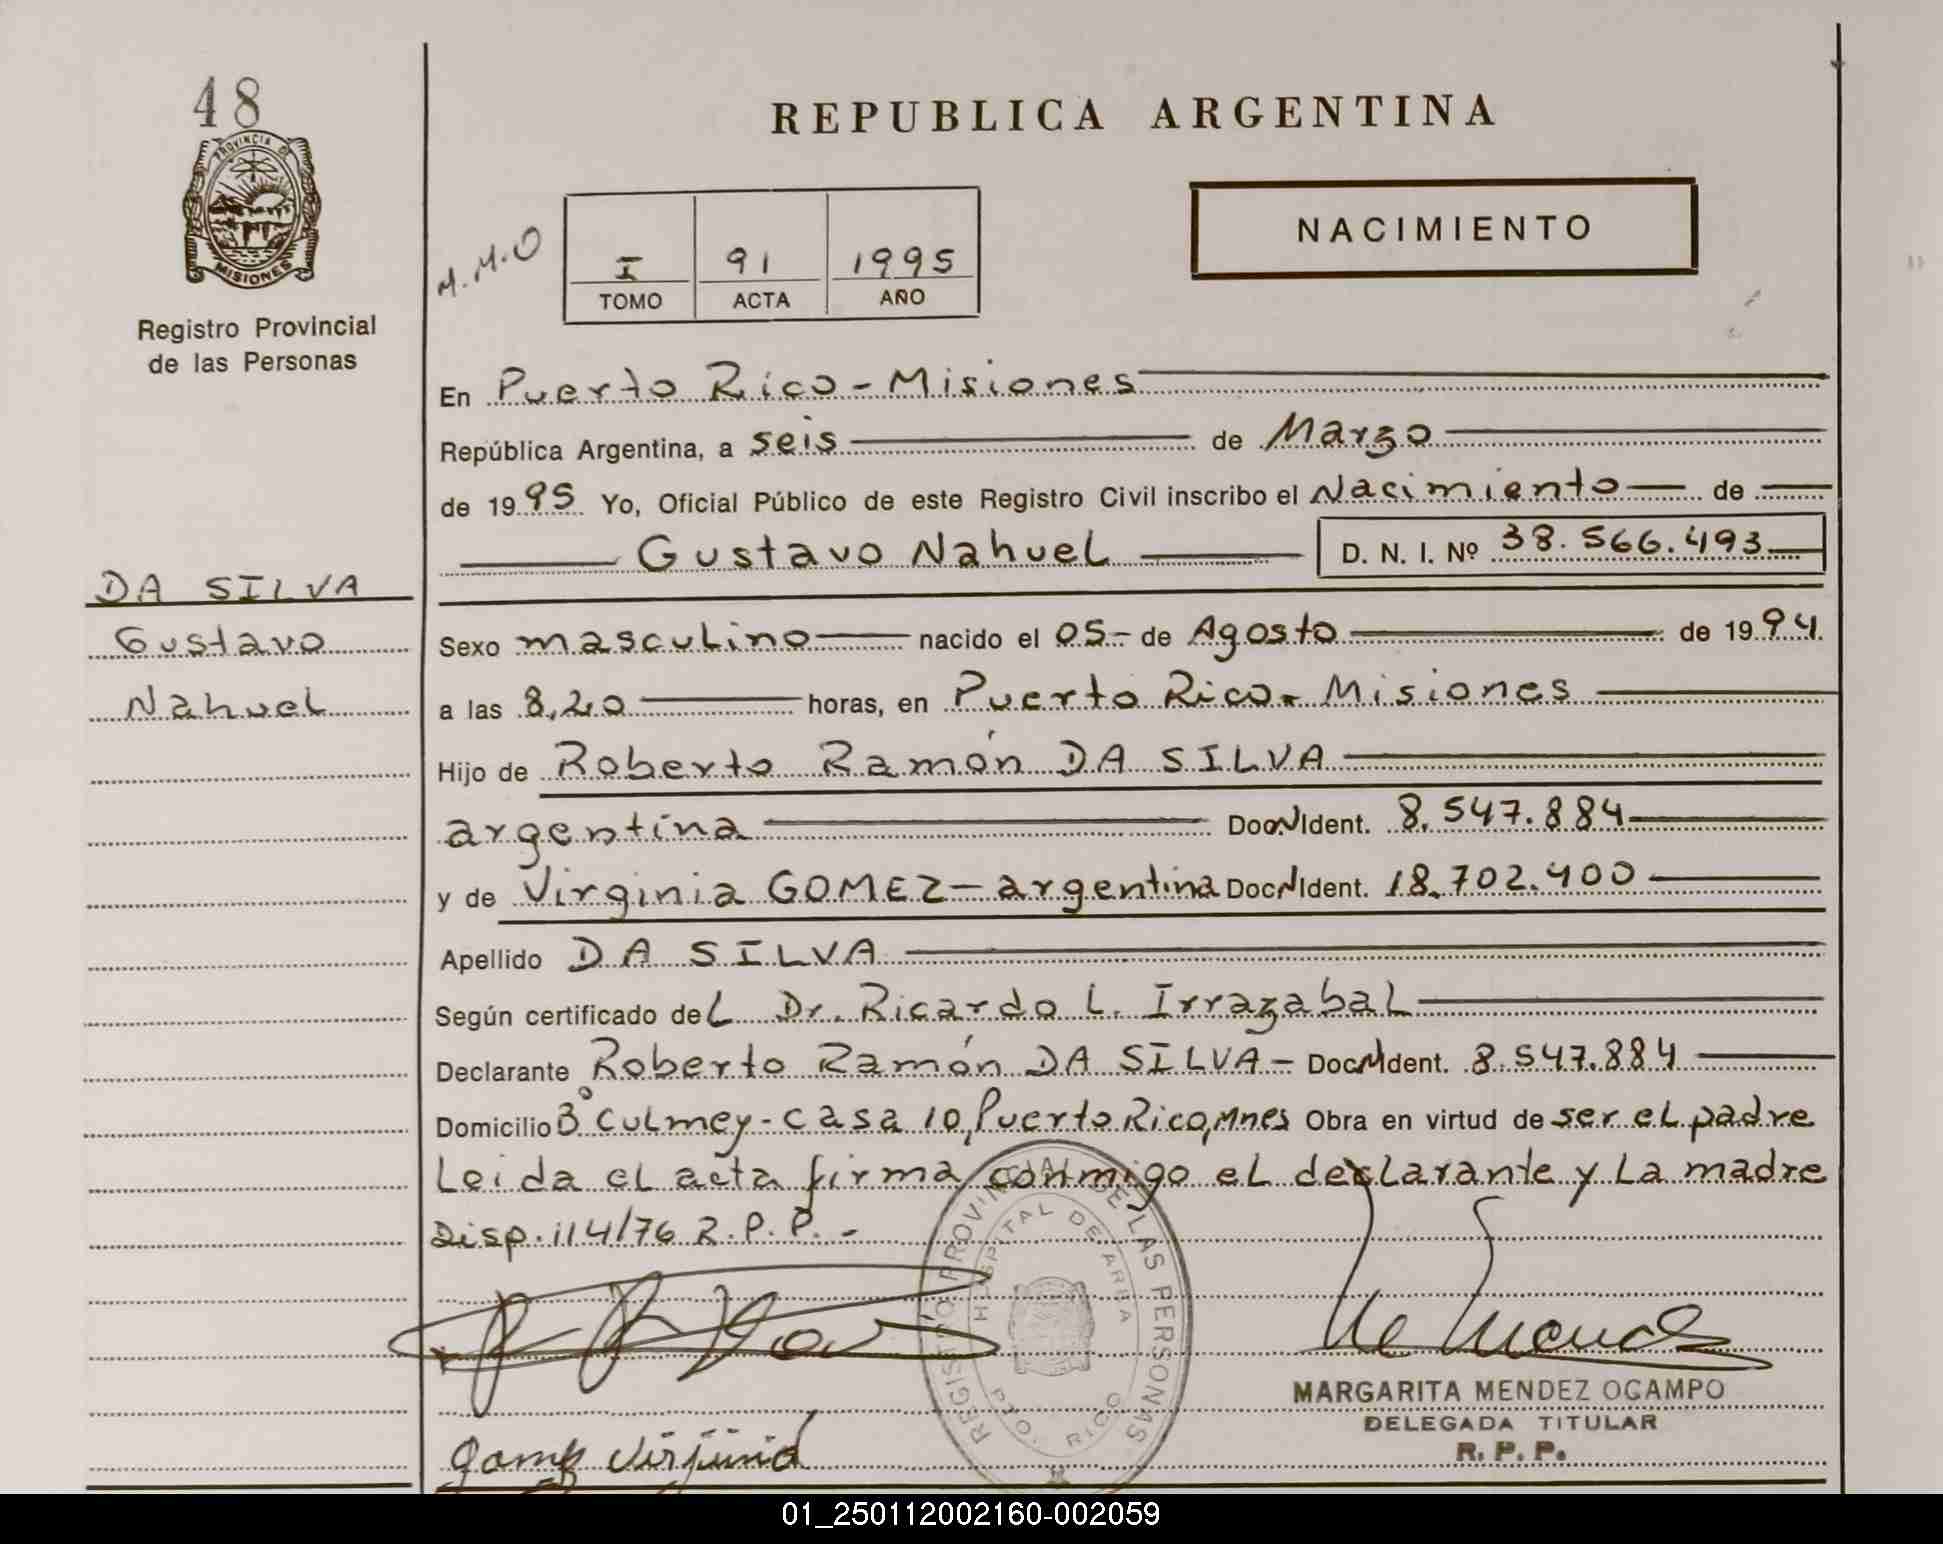 48
PROVINCIA DE
MISIONES
Registro Provincial
de las Personas
REPUBLICA ARGENTINA
M.M.O
I 91 1995
TOMO ACTA AÑO
NACIMIENTO
En Puerto Rico - Misiones
República Argentina, a seis de Marzo
de 1995 Yo, Oficial Público de este Registro Civil inscribo el Nacimiento de
Gustavo Nahuel D. N. I. Nº 38.566.493
DA SILVA
Gustavo
Nahuel
Sexo masculino nacido el 05- de Agosto de 1994
a las 8,20 horas, en Puerto Rico - Misiones
Hijo de Roberto Ramón DA SILVA
argentina Doc. N Ident. 8.547.884
y de Virginia GOMEZ - argentina Doc. N Ident. 18.702.400
Apellido DA SILVA
Según certificado del Dr. Ricardo L. Irrazabal
Declarante Roberto Ramón DA SILVA - Doc. N Ident. 8.547.884
Domicilio Bº Culmey - casa 10, Puerto Rico, Mnes Obra en virtud de ser el padre
Leida el acta firma conmigo el declarante y la madre
Disp. 114/76 R.P.P. -
REGISTRO PROVINCIAL DE LAS PERSONAS
HOSPITAL DE AREA
PTO. RICO
MARGARITA MENDEZ OCAMPO
DELEGADA TITULAR
R. P. P.
01_250112002160-002059